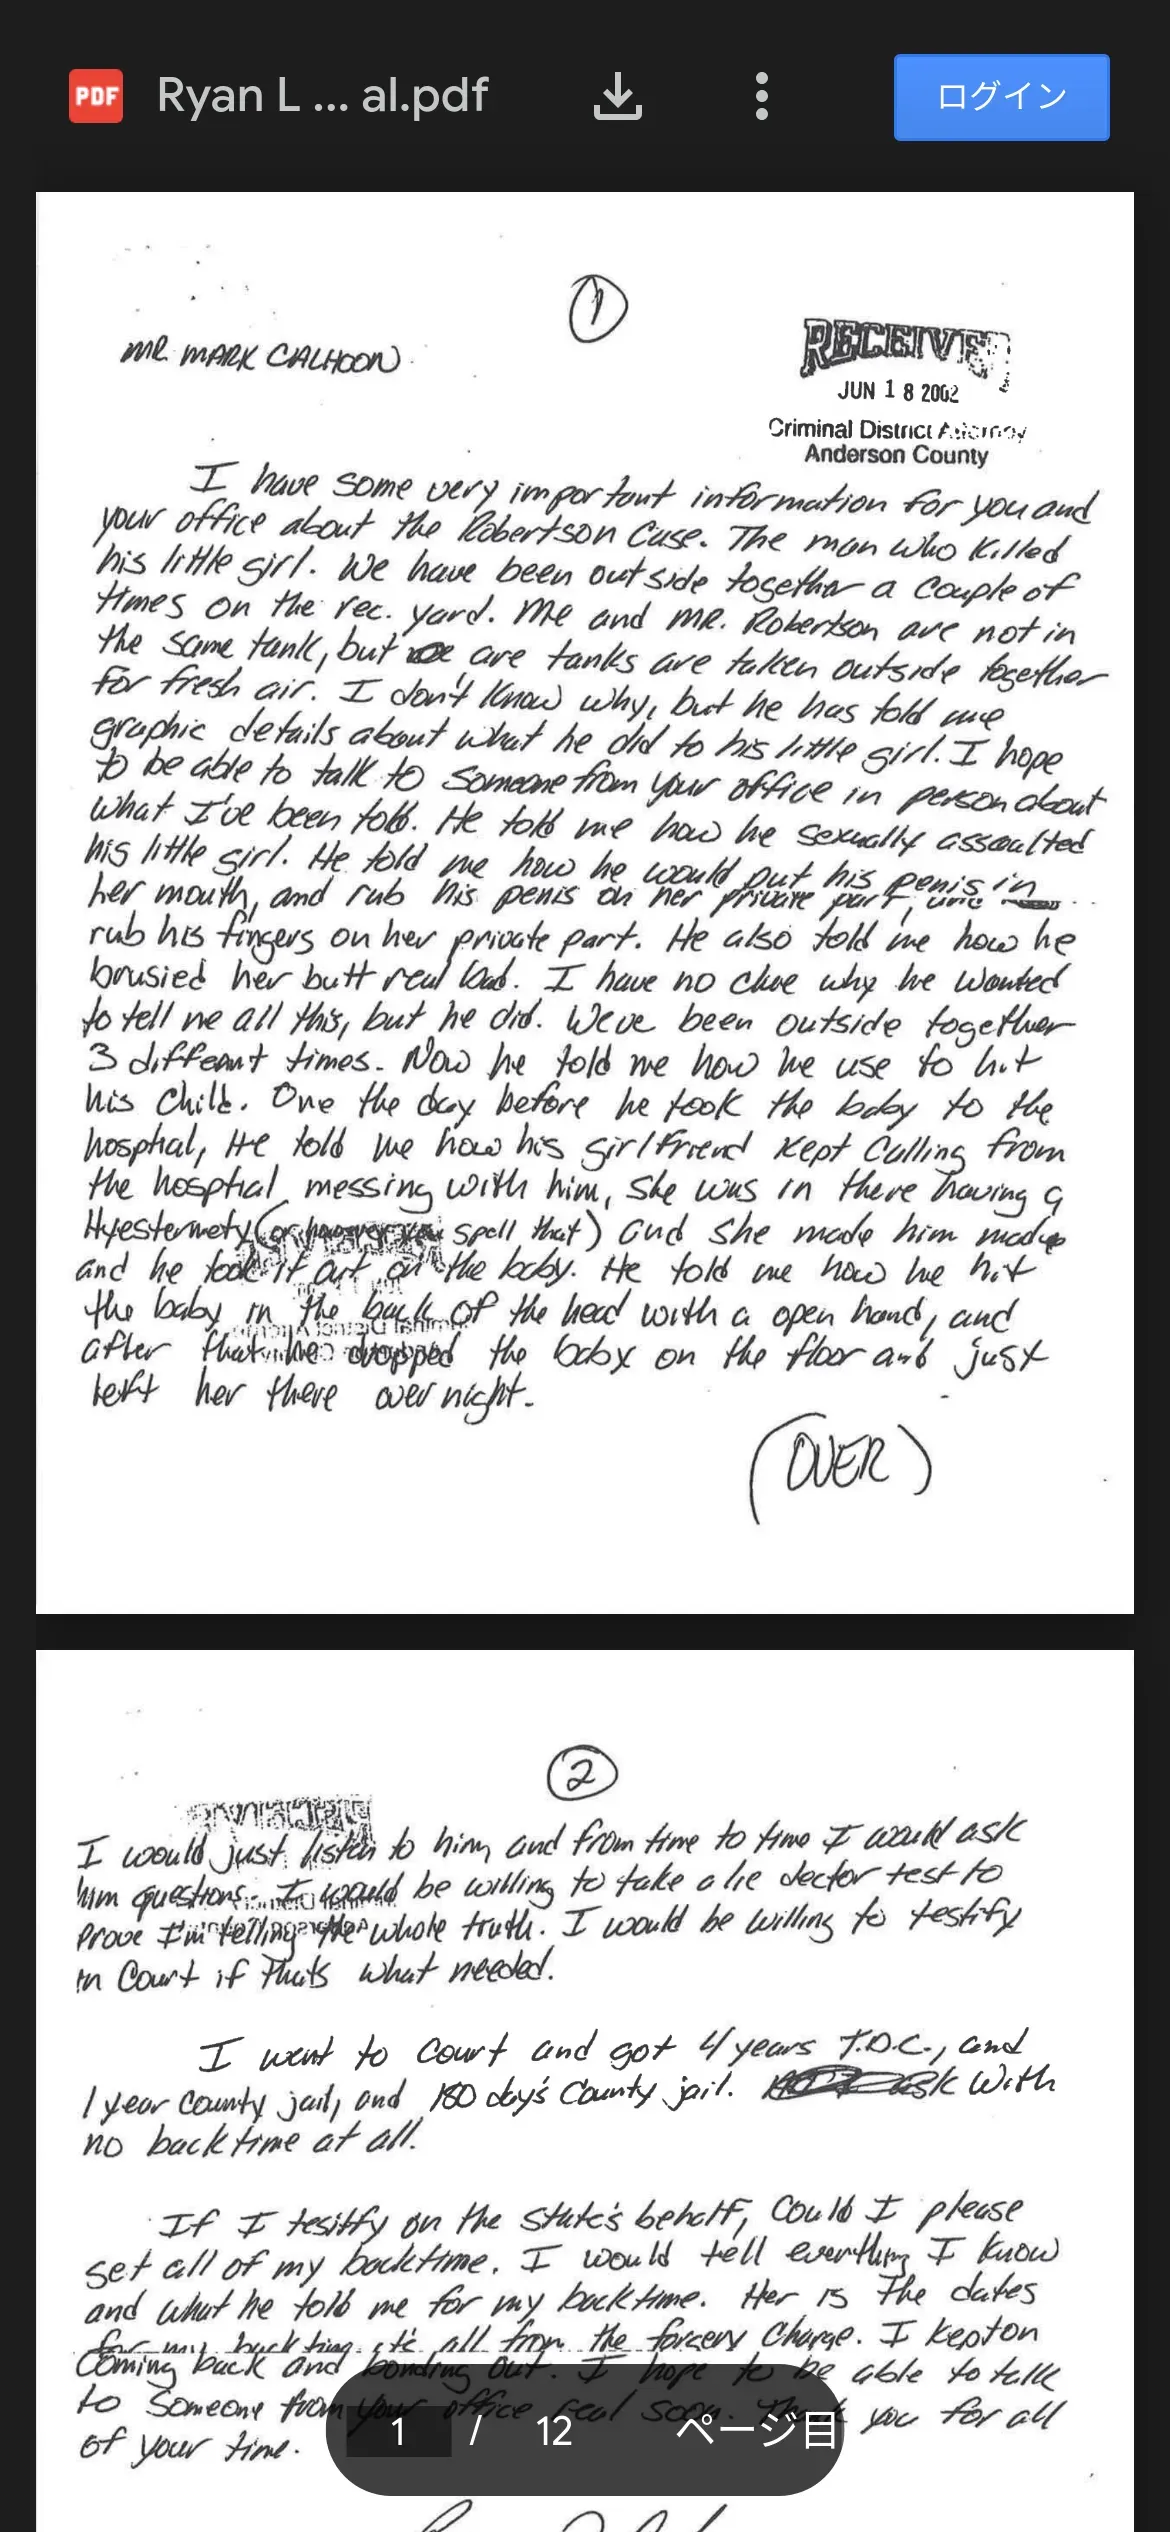 PDF Ryan L ... al.pdf ログイン
1
MR. MARK CALHOON
RECEIVED
JUN 18 2002
Criminal District Attorney
Anderson County
I have some very important information for you and
your office about the Robertson Case. The man who killed
his little girl. We have been outside together a couple of
times on the rec. yard. Me and MR. Robertson are not in
the same tank, but are tanks are taken outside together
for fresh air. I don't know why, but he has told me
graphic details about what he did to his little girl. I hope
to be able to talk to someone from your office in person about
what I've been told. He told me how he sexually assaulted
his little girl. He told me how he would put his penis in
her mouth, and rub his penis on her private part, and
rub his fingers on her private part. He also told me how he
brusied her butt real bad. I have no clue why he wanted
to tell me all this, but he did. Weve been outside together
3 diffeant times. Now he told me how he use to hit
his child. One the day before he took the baby to the
hosptial, He told me how his girlfriend kept calling from
the hosptial messing with him, she was in there having a
Hyestermety (or however you spell that) and she made him made
and he took it out on the baby. He told me how he hit
the baby in the back of the head with a open hand, and
after that he dropped the baby on the floor and just
left her there over night.
(OVER)
2
I would just listen to him, and from time to time I would ask
him questions. I would be willing to take a lie dector test to
prove I'm telling the whole truth. I would be willing to testify
in Court if thats what needed.
I went to court and got 4 years T.D.C., and
1 year county jail, and 180 day's County jail. With
no backtime at all.
If I tesitfy on the state's behalf, Could I please
get all of my backtime. I would tell everthing I know
and what he told me for my backtime. Her is the dates
for my backtime it's all from the forgery Charge. I kept on
coming back and bonding out. I hope to be able to talk
to someone from your office real soon. Thank you for all
of your time.
1 / 12 ページ目